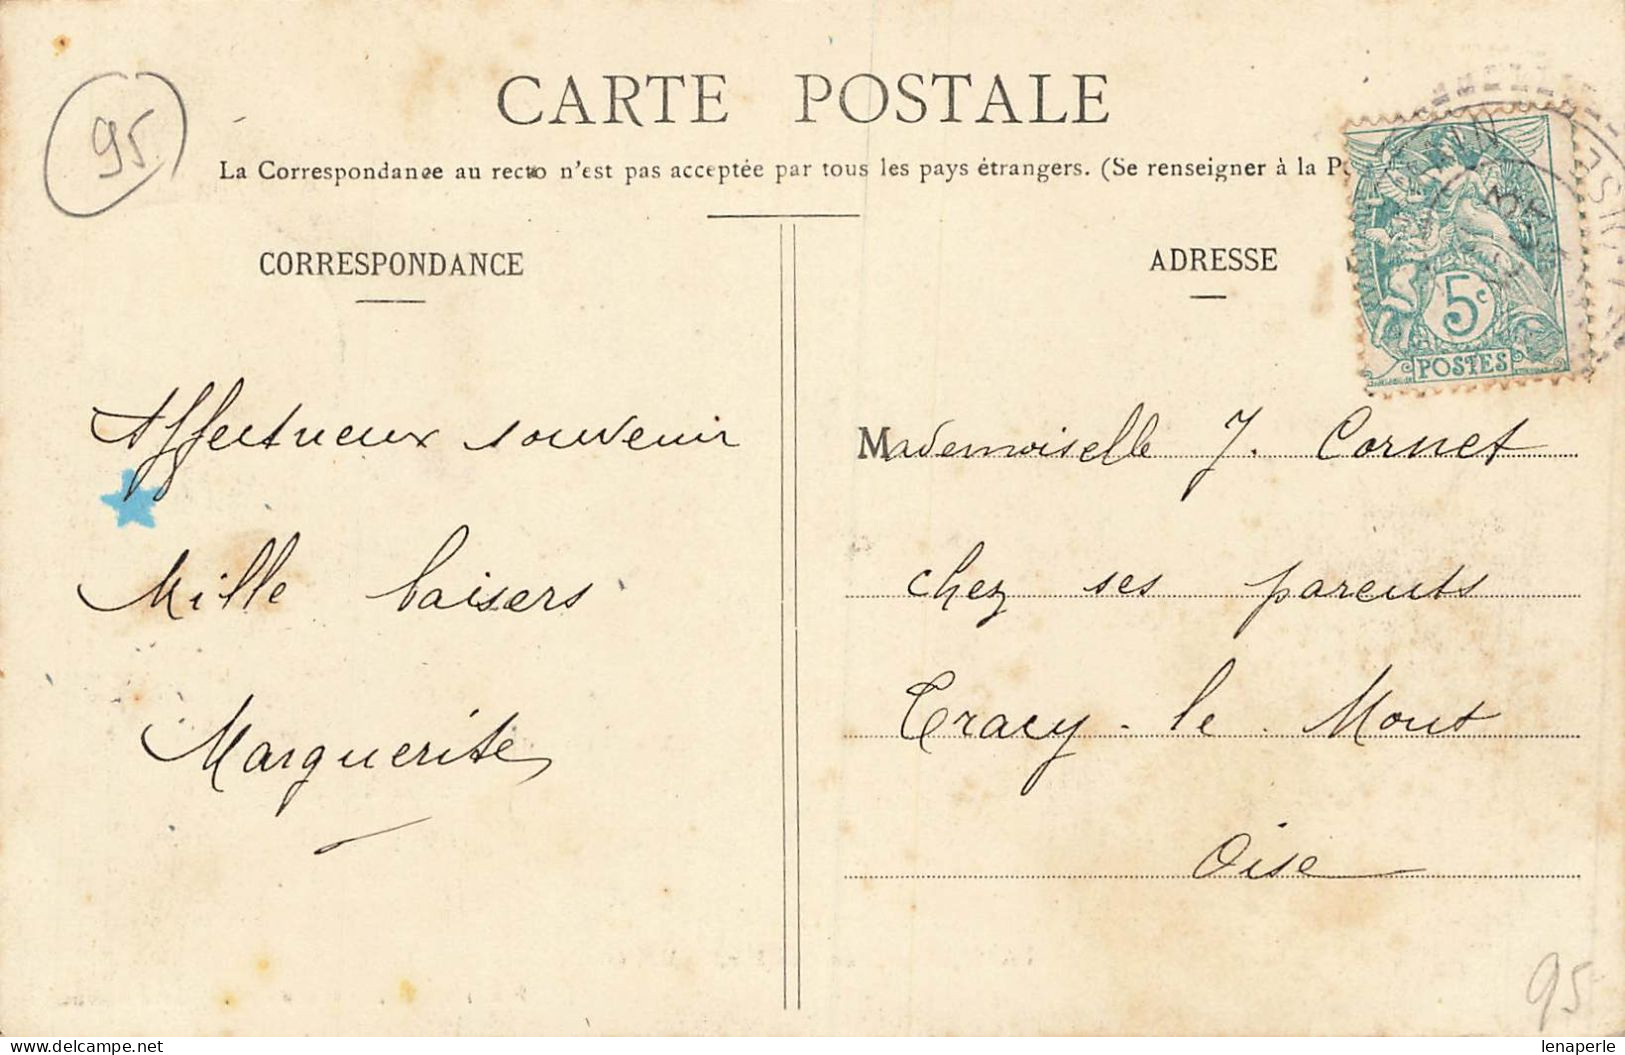 95
CARTE POSTALE
La Correspondance au recto n'est pas acceptée par tous les pays étrangers. (Se renseigner à la
CORRESPONDANCE
ADRESSE
5c
POSTES
Affectueux souvenir
Mille baisers
Marguerite
Mademoiselle J. Cornet
chez ses parents
Tracy-le-Mont
Oise
95
www.delcampe.net
lenaperle